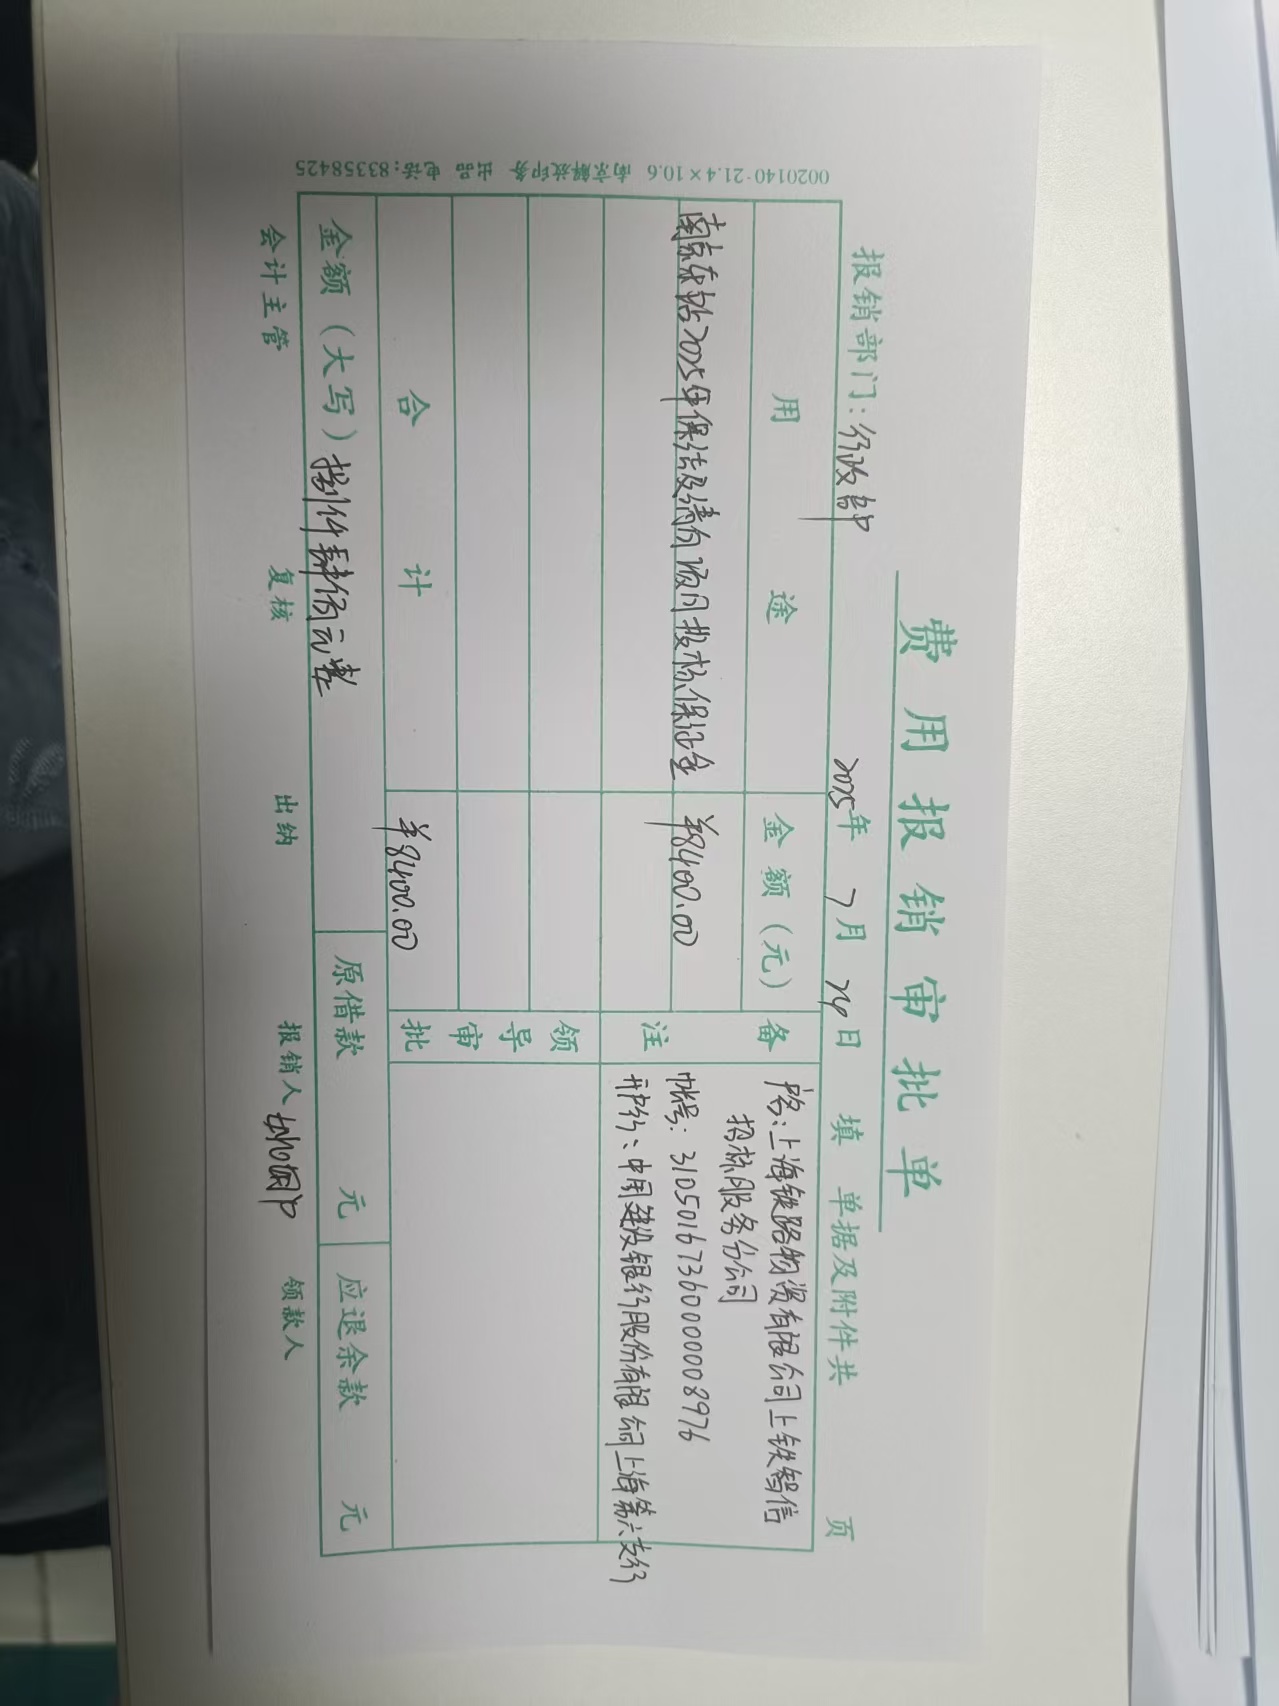 费用报销审批单
报销部门：行政部 2025年 7月 24日 填 单据及附件共 页
用途 金额（元） 备注
南京东站2025年保洁及清向项目投标保证金 ¥8400.00
户名：上海铁路物资有限公司上铁智信
招标服务分公司
帐号：31050167360000008976
开户行：中国建设银行股份有限公司上海第六支行
领导审批
合计 ¥8400.00
金额（大写）捌仟肆佰元整 原借款 元 应退余款 元
会计主管 复核 出纳 报销人 领款人
0020140-21.4×10.6 南京解放印务 出品 电话:83358425